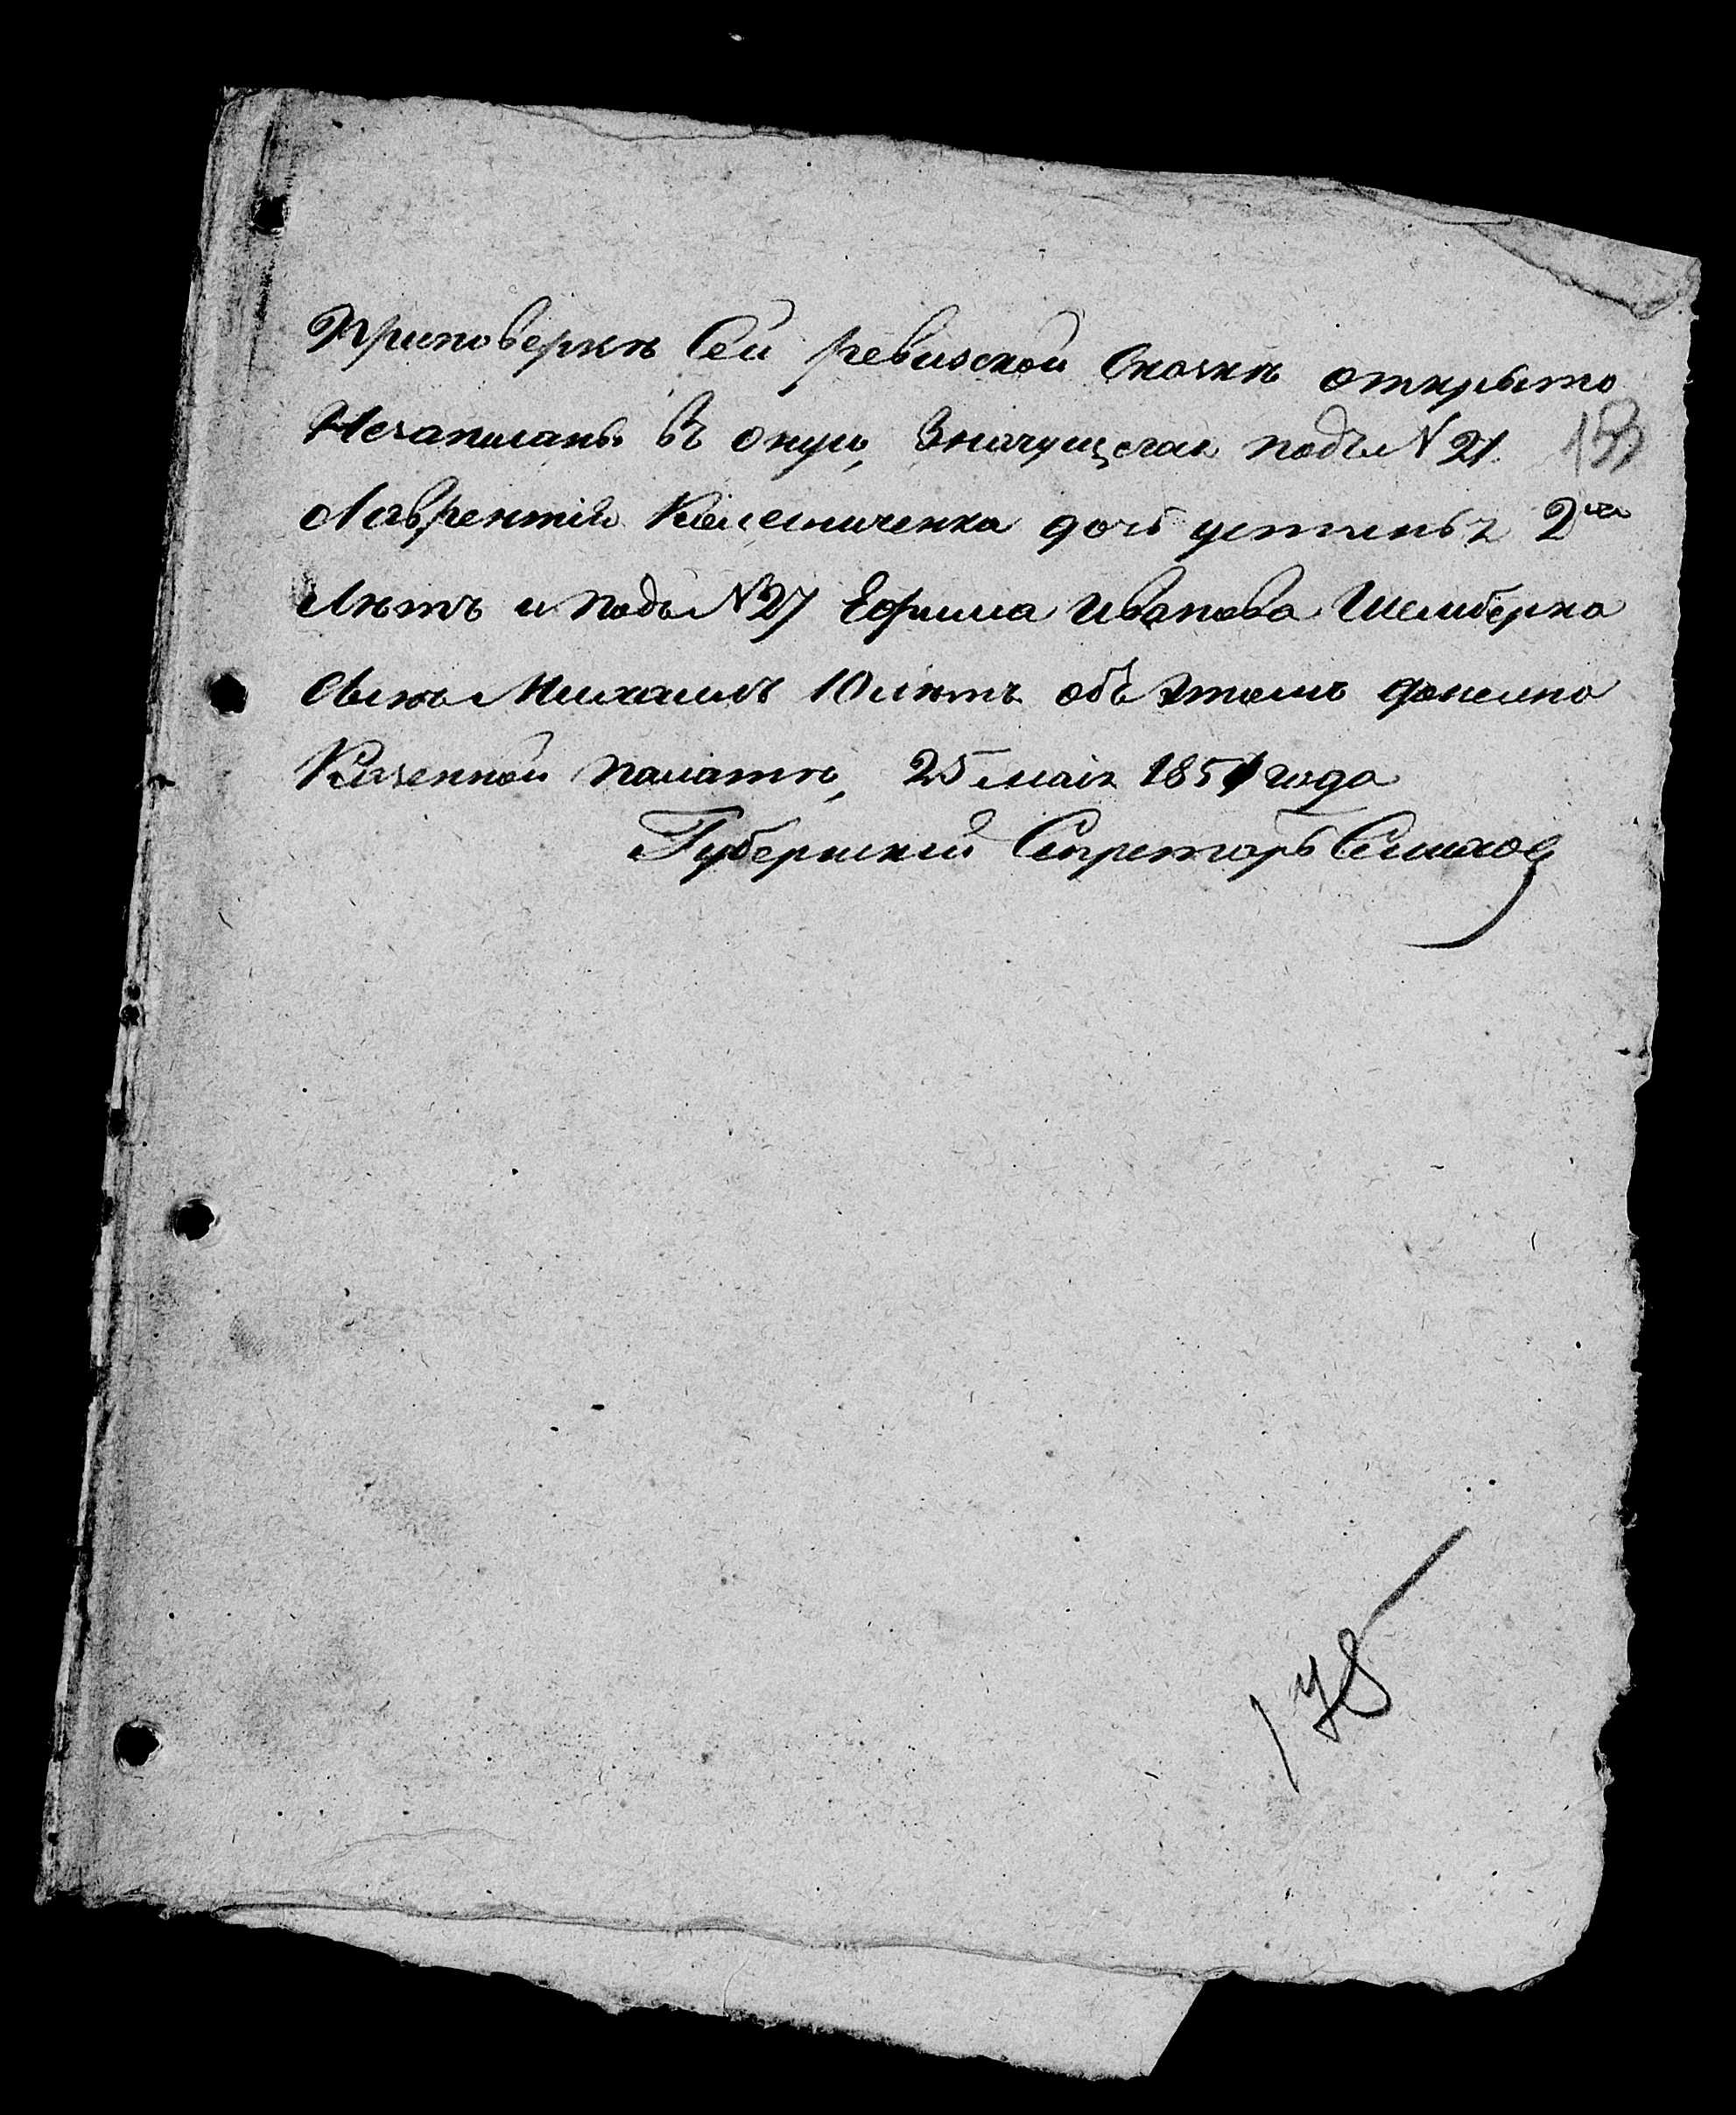 Приповеркѣ Сей ревизской Скаскѣ открыто
Незаписанъ въ оную, значущегося подъ №21
Лаврентія Колесниченка дочь устинья 2хъ
лѣтъ и подъ №27 Ефима Иванова Шемберка
Сынъ Михаилъ 10 лѣтъ объ этомъ донесено
Казенной палатѣ, 25 маія 1851 года
Губернский Секретарь
178